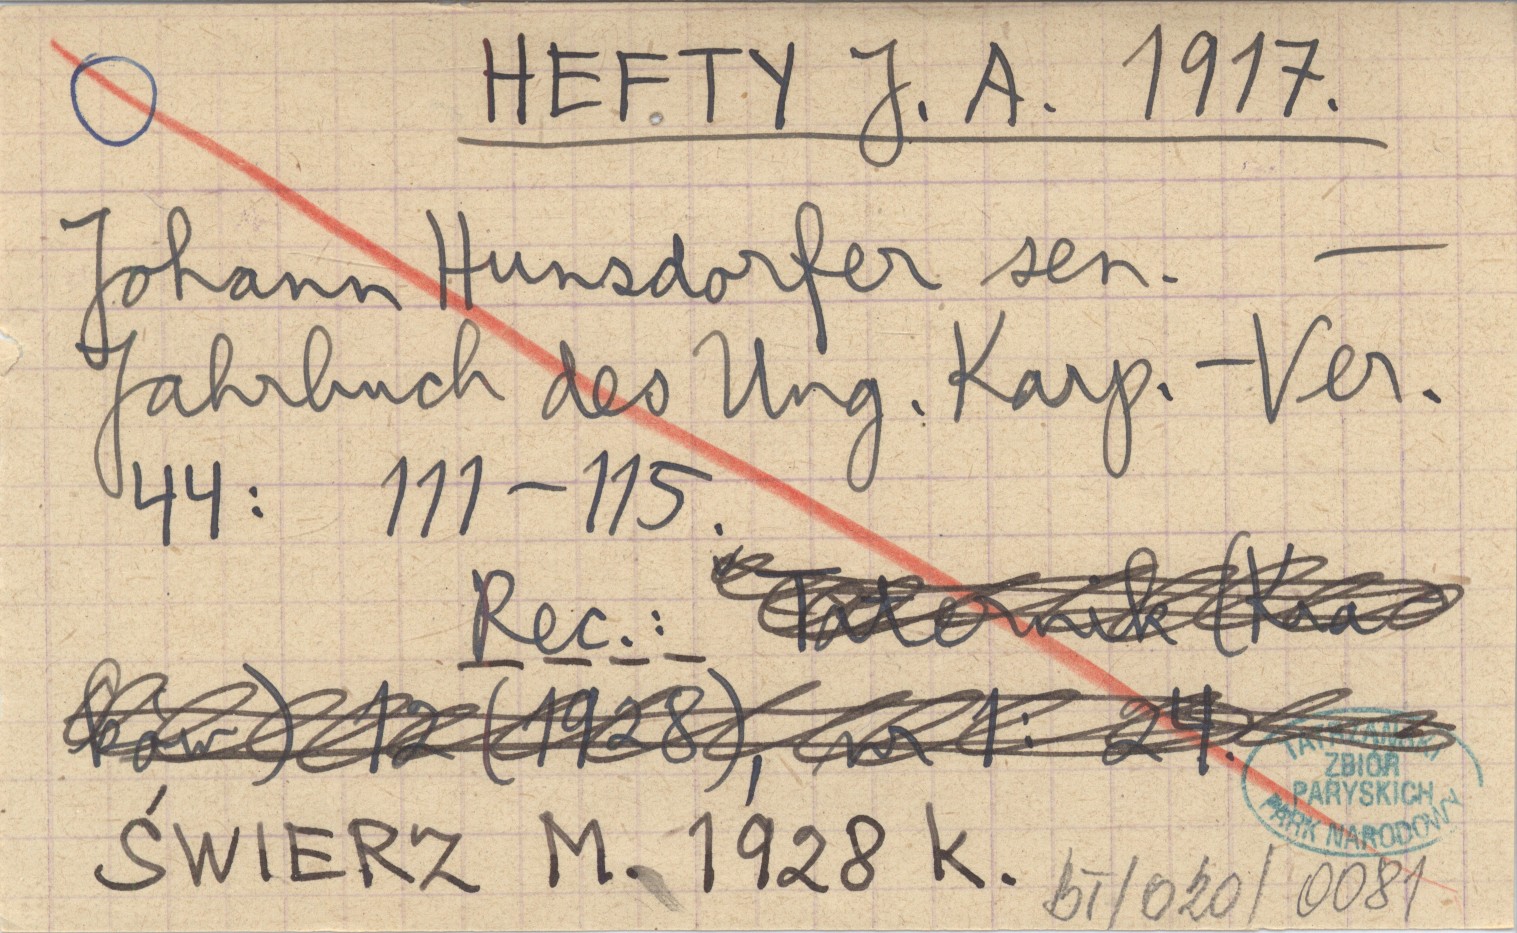 HEFTY J. A. 1917.
Johann Hunsdorfer sen. —
Jahrbuch des Ung. Karp.-Ver.
44: 111-115.
Rec.: Taternik (Kra
ków) 12 (1928), nr 1: 24.
ŚWIERZ M. 1928 k.
TATRZAŃSKI
ZBIÓR
PARYSKICH
PARK NARODOWY
bI/020/0081